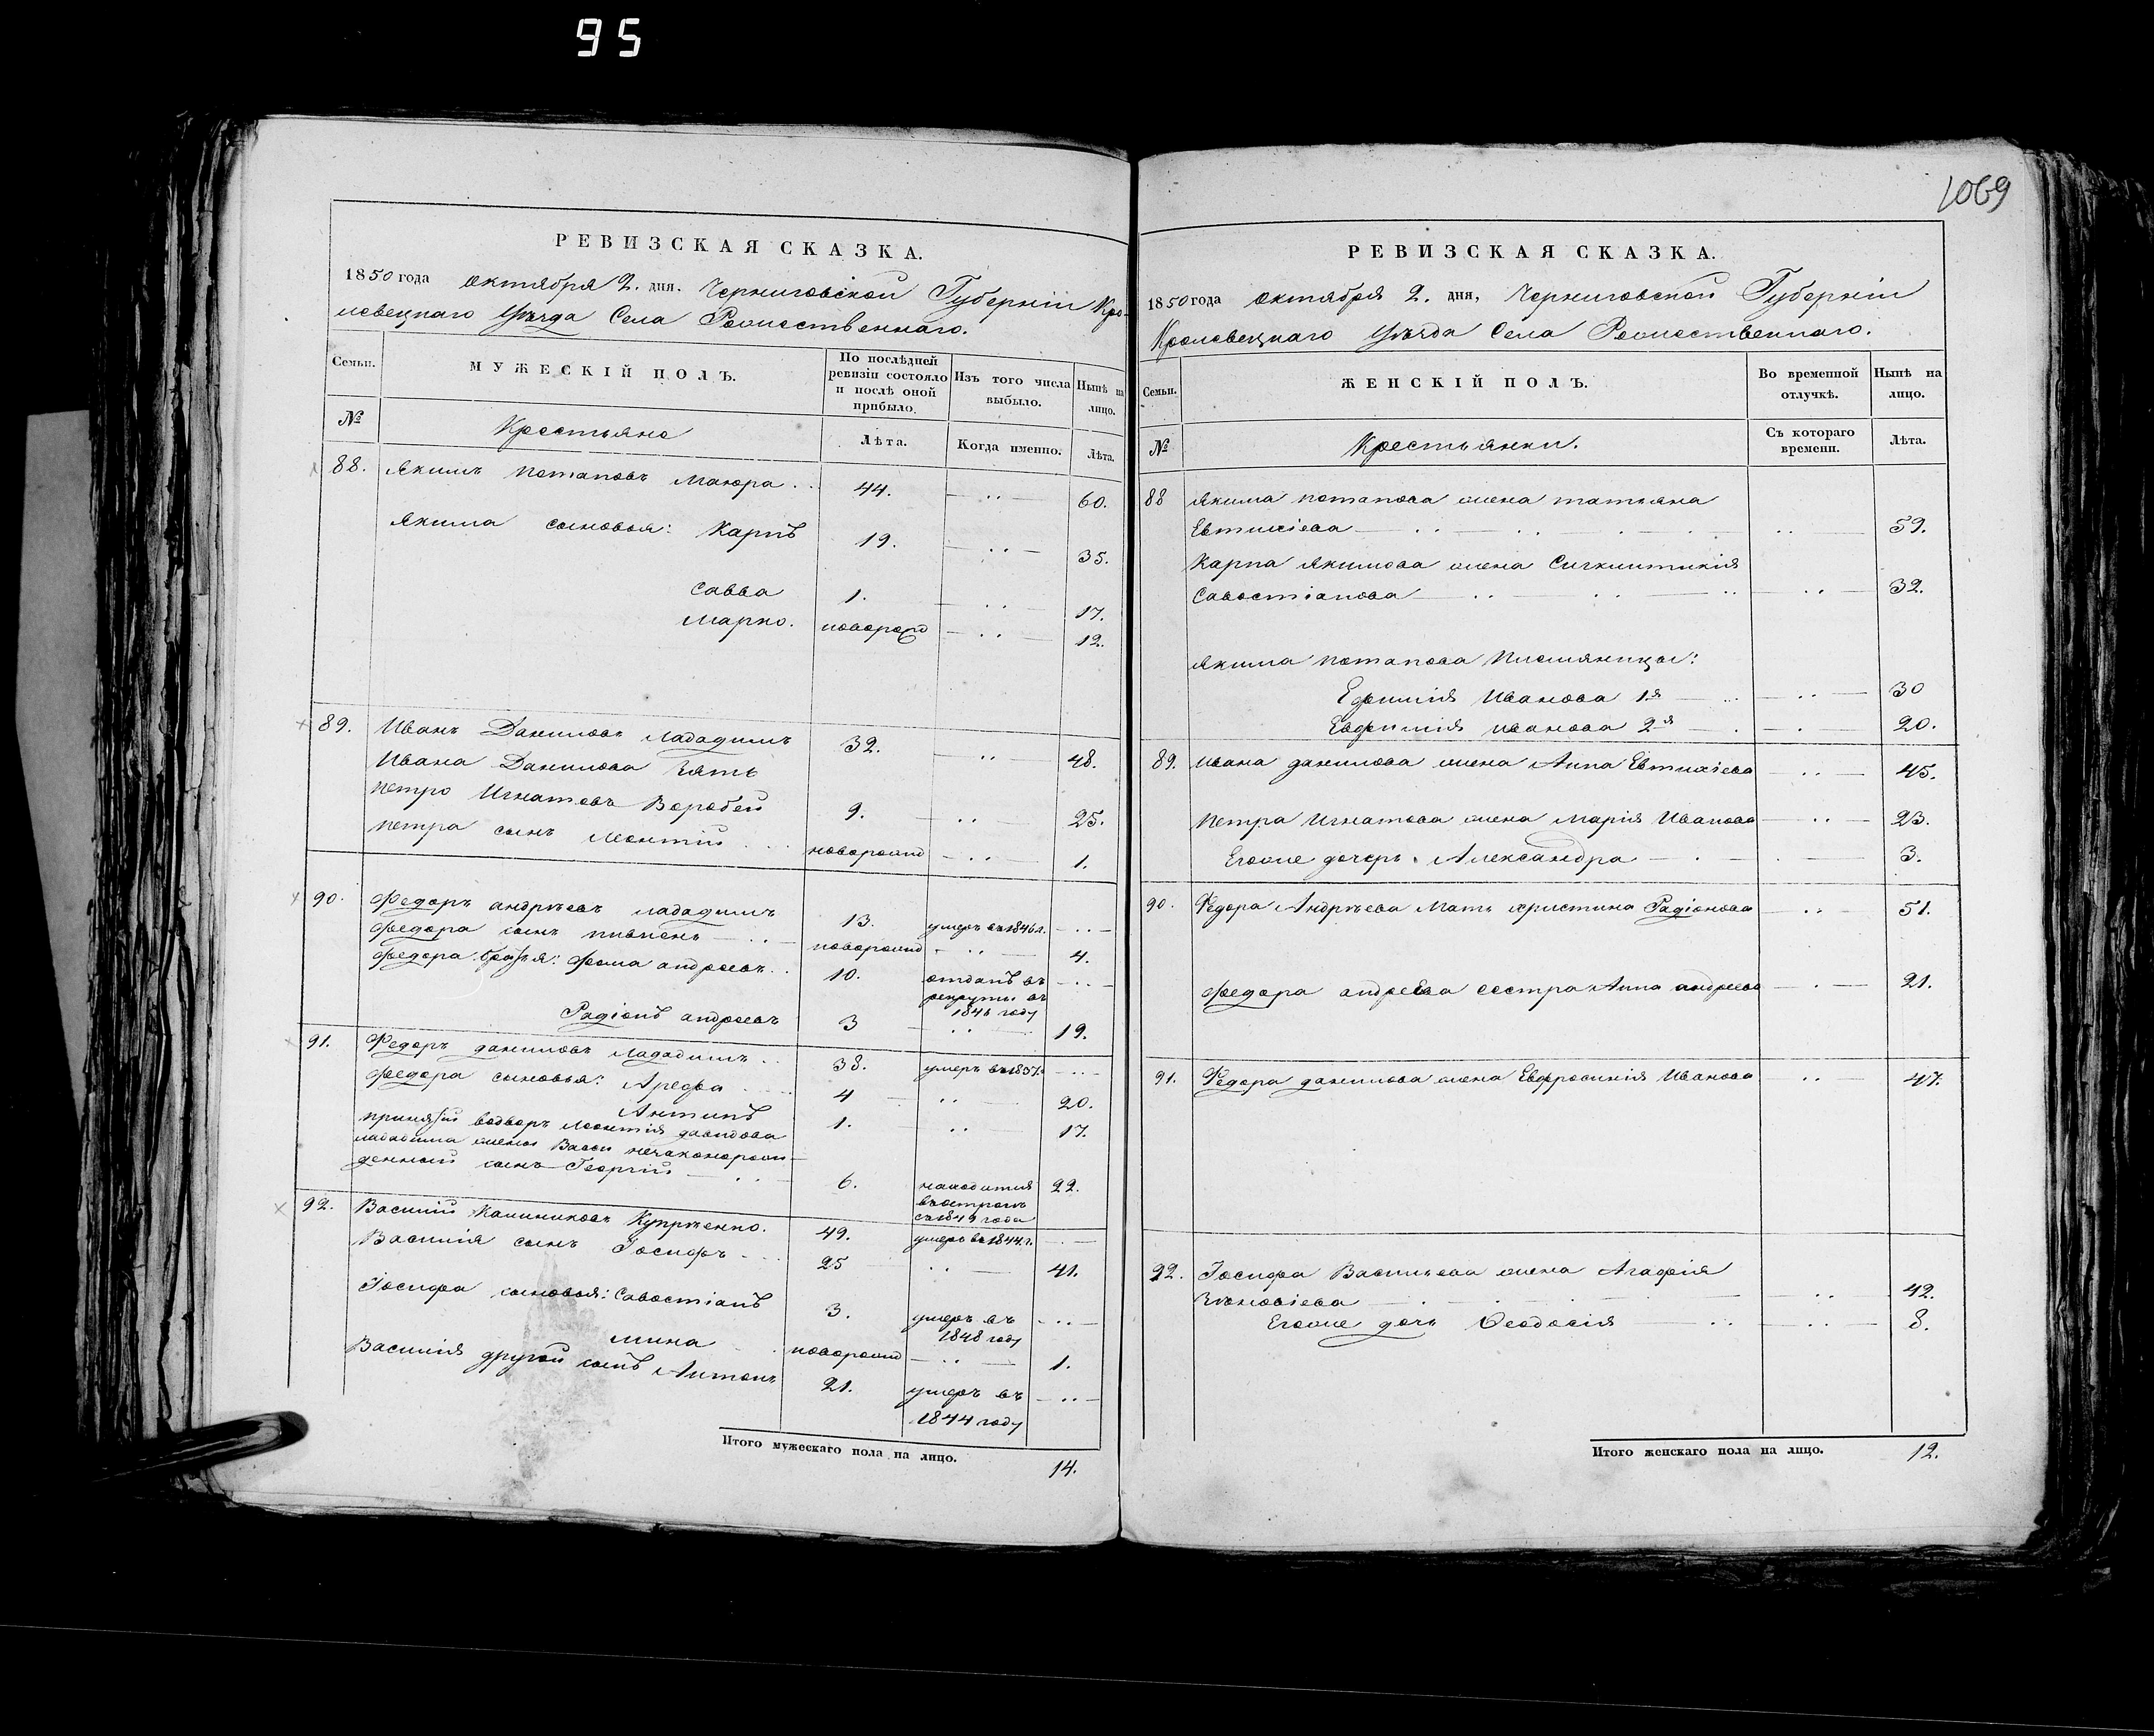 95
1069
РЕВИЗСКАЯ СКАЗКА.
1850 года октября 2. дня. Черниговской Губерніи Кро-
левецкаго Уѣзда Села Рождественнаго.
Семьи. МУЖЕСКІЙ ПОЛЪ. По послѣдней ревизіи состояло и послѣ оной прибыло. Изъ того числа выбыло. Нынѣ на лицо.
№ Крестьяне Лѣта. Когда именно. Лѣта.
88. Якимъ Потаповъ Маюра 44. 60.
Якима сыновья: Карпъ 19. 35.
Савва 1. 17.
Марко. новорожд 12.
89. Иванъ Даниловъ Лададимъ 32. 48.
Ивана Данилова Зять
Петро Игнатовъ Воробей 9. 25.
Петра сынъ Леонтій новорожд 1.
90. Федоръ андрѣевъ Лададимъ 13. умеръ въ 1846 г.
Федора сынъ Пивненъ новорожд 4.
Федора братья: Фома андреевъ 10. отданъ въ
рекруты въ
1846 году
Радіонъ андреевъ 3 19.
91. Федоръ даниловъ Лададимъ 38. умеръ въ 1837.
Федора сыновья: Арефа 4 20.
Антипъ 1. 17.
принятый водворъ Леонтія давидова
лададима жены Васси незаконорож-
денный сынъ Георгій 6. находится 22.
въ острогѣ
съ 1849 года
92. Василий Калиниковъ Купрѣенко. 49. умеръ въ 1844. г.
Василія сынъ Іосифъ 25 41.
Іосифа сыновья: Савостіанъ 3. умеръ въ
1848 году
Мина новорожд 1.
Василія другой сынъ Антонъ 21. умеръ въ
1844 году
Итого мужескаго пола на лицо. 14.
РЕВИЗСКАЯ СКАЗКА.
1850 года октября 2. дня, Черниговской Губерніи
Кролевецкаго Уѣзда Села Рождественнаго.
Семьи. ЖЕНСКІЙ ПОЛЪ. Во временной отлучкѣ. Нынѣ на лицо.
№ Крестьянки. Съ котораго времени. Лѣта.
88 Якима потапова жена татьяна
Евтихіева 59.
Карпа Якимова жена Сигклитикія
Савостіанова 32.
Якима потапова Племяницы:
Ефимія Иванова 1я 30
Евфимія иванова 2я 20.
89. Ивана данилова жена Анна Евтихіева 45.
Петра Игнатова жена Марія Иванова 23.
Егоже дочерь Александра 3.
90. Федора Андрѣева Мать христина Радіонова 51.
Федора андреева сестра Анна андреева 21.
91. Федора данилова жена Евфросинія Иванова 47.
92. Іосифа Васильева жена Агафія
Зѣновіева 42.
Егоже дочь Феодосія 8.
Итого женскаго пола на лицо. 12.